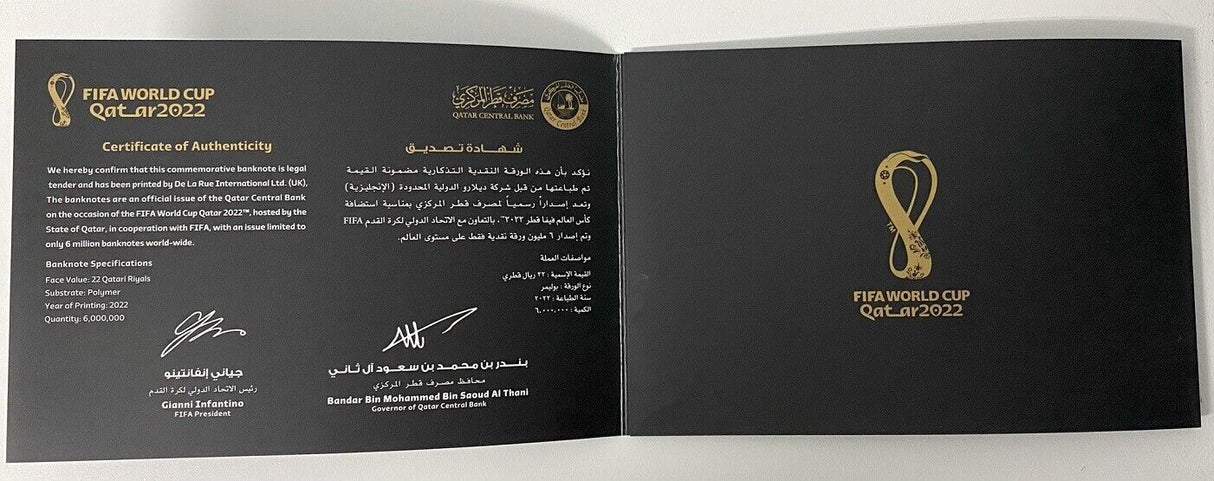 FIFA WORLD CUP
Qatar2022
مصرف قطر المركزي
QATAR CENTRAL BANK
Qatar Central Bank
Certificate of Authenticity
We hereby confirm that this commemorative banknote is legal
tender and has been printed by De La Rue International Ltd. (UK),
The banknotes are an official issue of the Qatar Central Bank
on the occasion of the FIFA World Cup Qatar 2022™, hosted by the
State of Qatar, in cooperation with FIFA, with an issue limited to
only 6 million banknotes world-wide.
Banknote Specifications
Face Value: 22 Qatari Riyals
Substrate: Polymer
Year of Printing: 2022
Quantity: 6,000,000
شهادة تصديق
نؤكد بأن هذه الورقة النقدية التذكارية مضمونة القيمة
تم طباعتها من قبل شركة ديلارو الدولية المحدودة (الإنجليزية)
وتعد إصداراً رسمياً لمصرف قطر المركزي بمناسبة استضافة
كأس العالم فيفا قطر ٢٠٢٢™، بالتعاون مع الاتحاد الدولي لكرة القدم FIFA
وتم إصدار ٦ مليون ورقة نقدية فقط على مستوى العالم.
مواصفات العملة
القيمة الإسمية : ٢٢ ريال قطري
نوع الورقة : بوليمر
سنة الطباعة : ٢٠٢٢
الكمية : ٦,٠٠٠,٠٠٠
جياني إنفانتينو
رئيس الاتحاد الدولي لكرة القدم
Gianni Infantino
FIFA President
بندر بن محمد بن سعود آل ثاني
محافظ مصرف قطر المركزي
Bandar Bin Mohammed Bin Saoud Al Thani
Governor of Qatar Central Bank
TM
FIFA WORLD CUP
Qatar2022